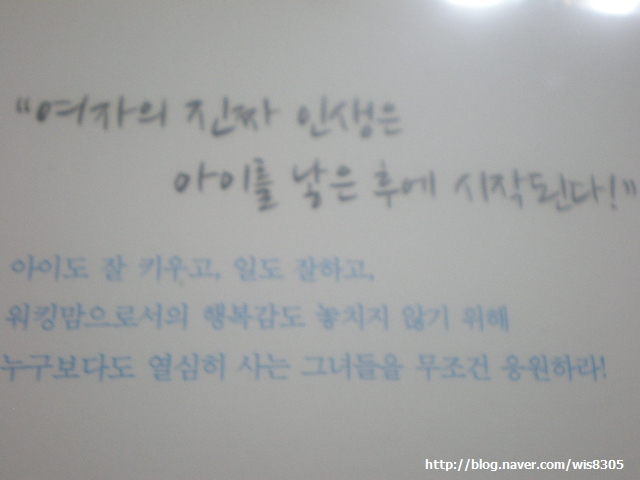 “여자의 진짜 인생은
아이를 낳은 후에 시작된다!”
아이도 잘 키우고, 일도 잘하고,
워킹맘으로서의 행복감도 놓치지 않기 위해
누구보다도 열심히 사는 그녀들을 무조건 응원하라!
http://blog.naver.com/wis8305